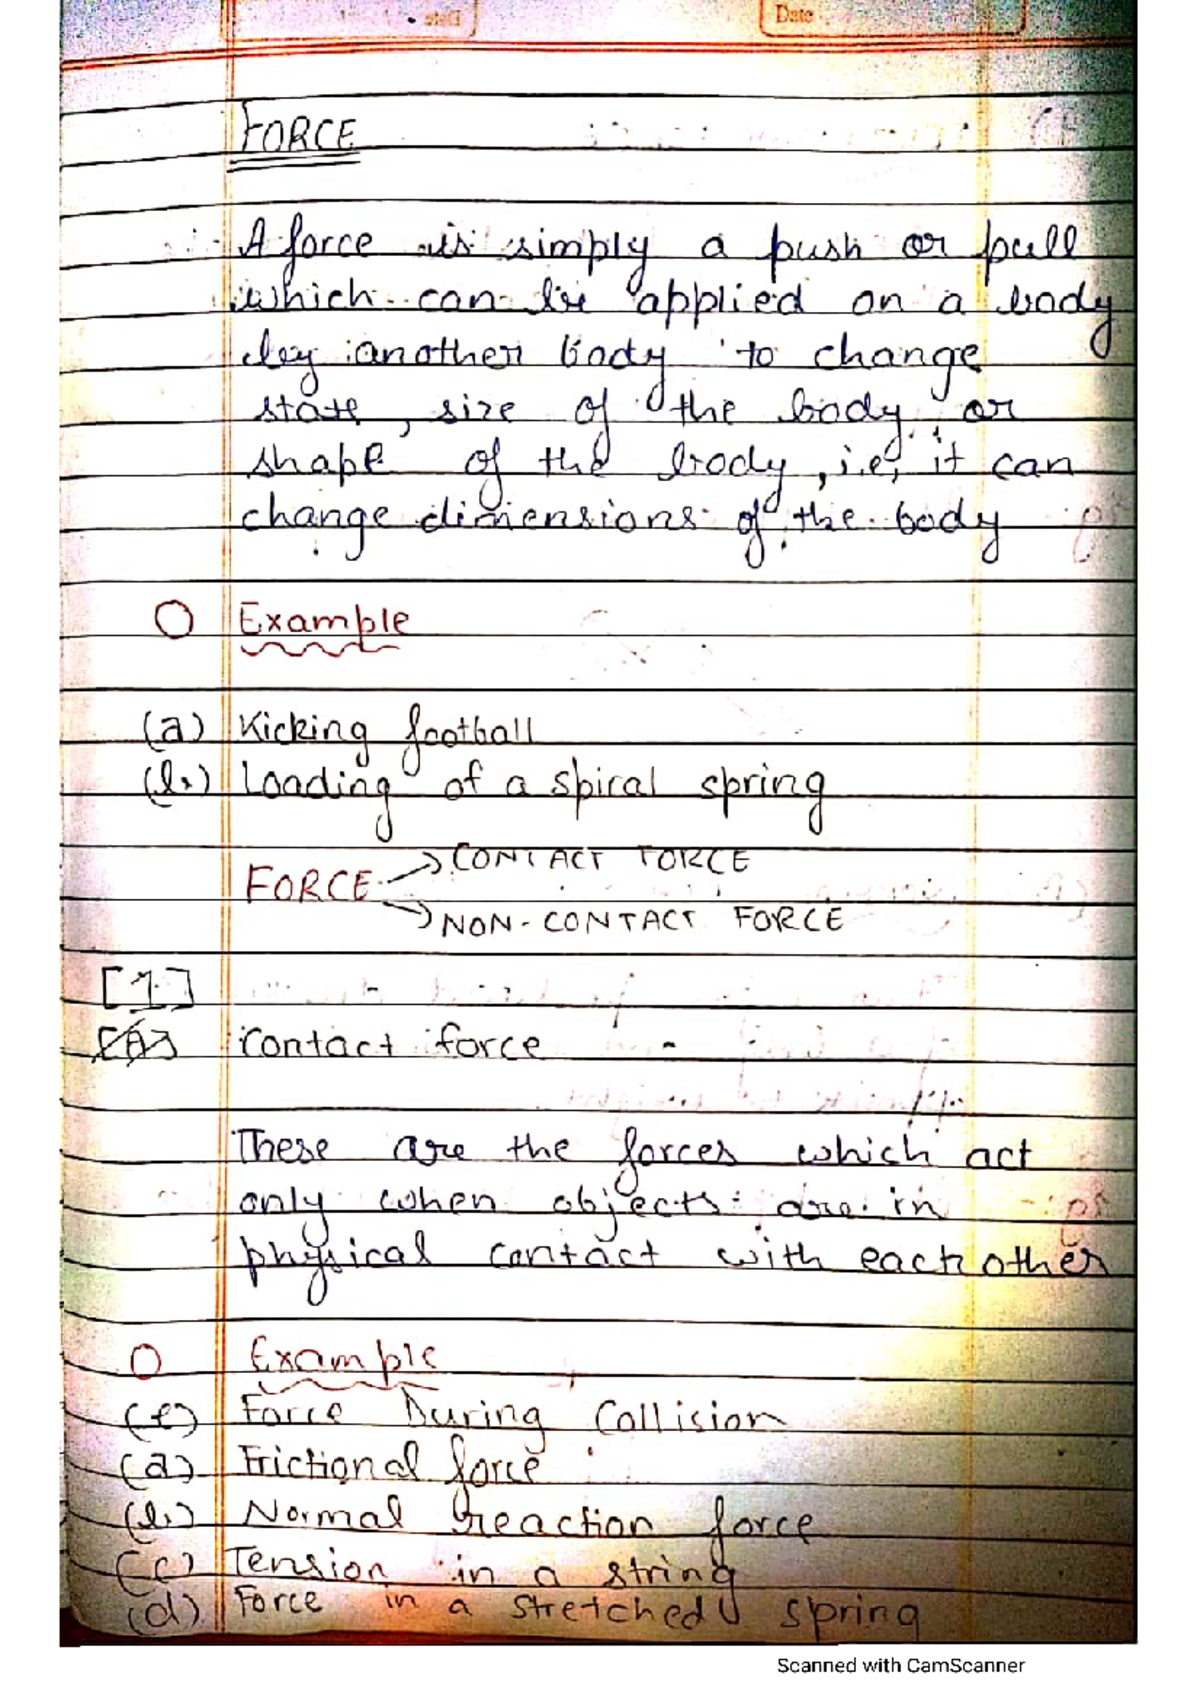 Date
FORCE
A force is simply a push or pull
which can be applied on a body
by another body to change
state, size of the body or
shape of the body, i.e, it can
change dimensions of the body
Example
(a) Kicking football
(b) Loading of a spiral spring
FORCE → CONTACT FORCE
→ NON-CONTACT FORCE
[1]
Contact force
These are the forces which act
only when objects are in
physical contact with each other
Example
(e) Force During Collision
(a) Frictional force
(b) Normal reaction force
(c) Tension in a string
(d) Force in a stretched spring
Scanned with CamScanner